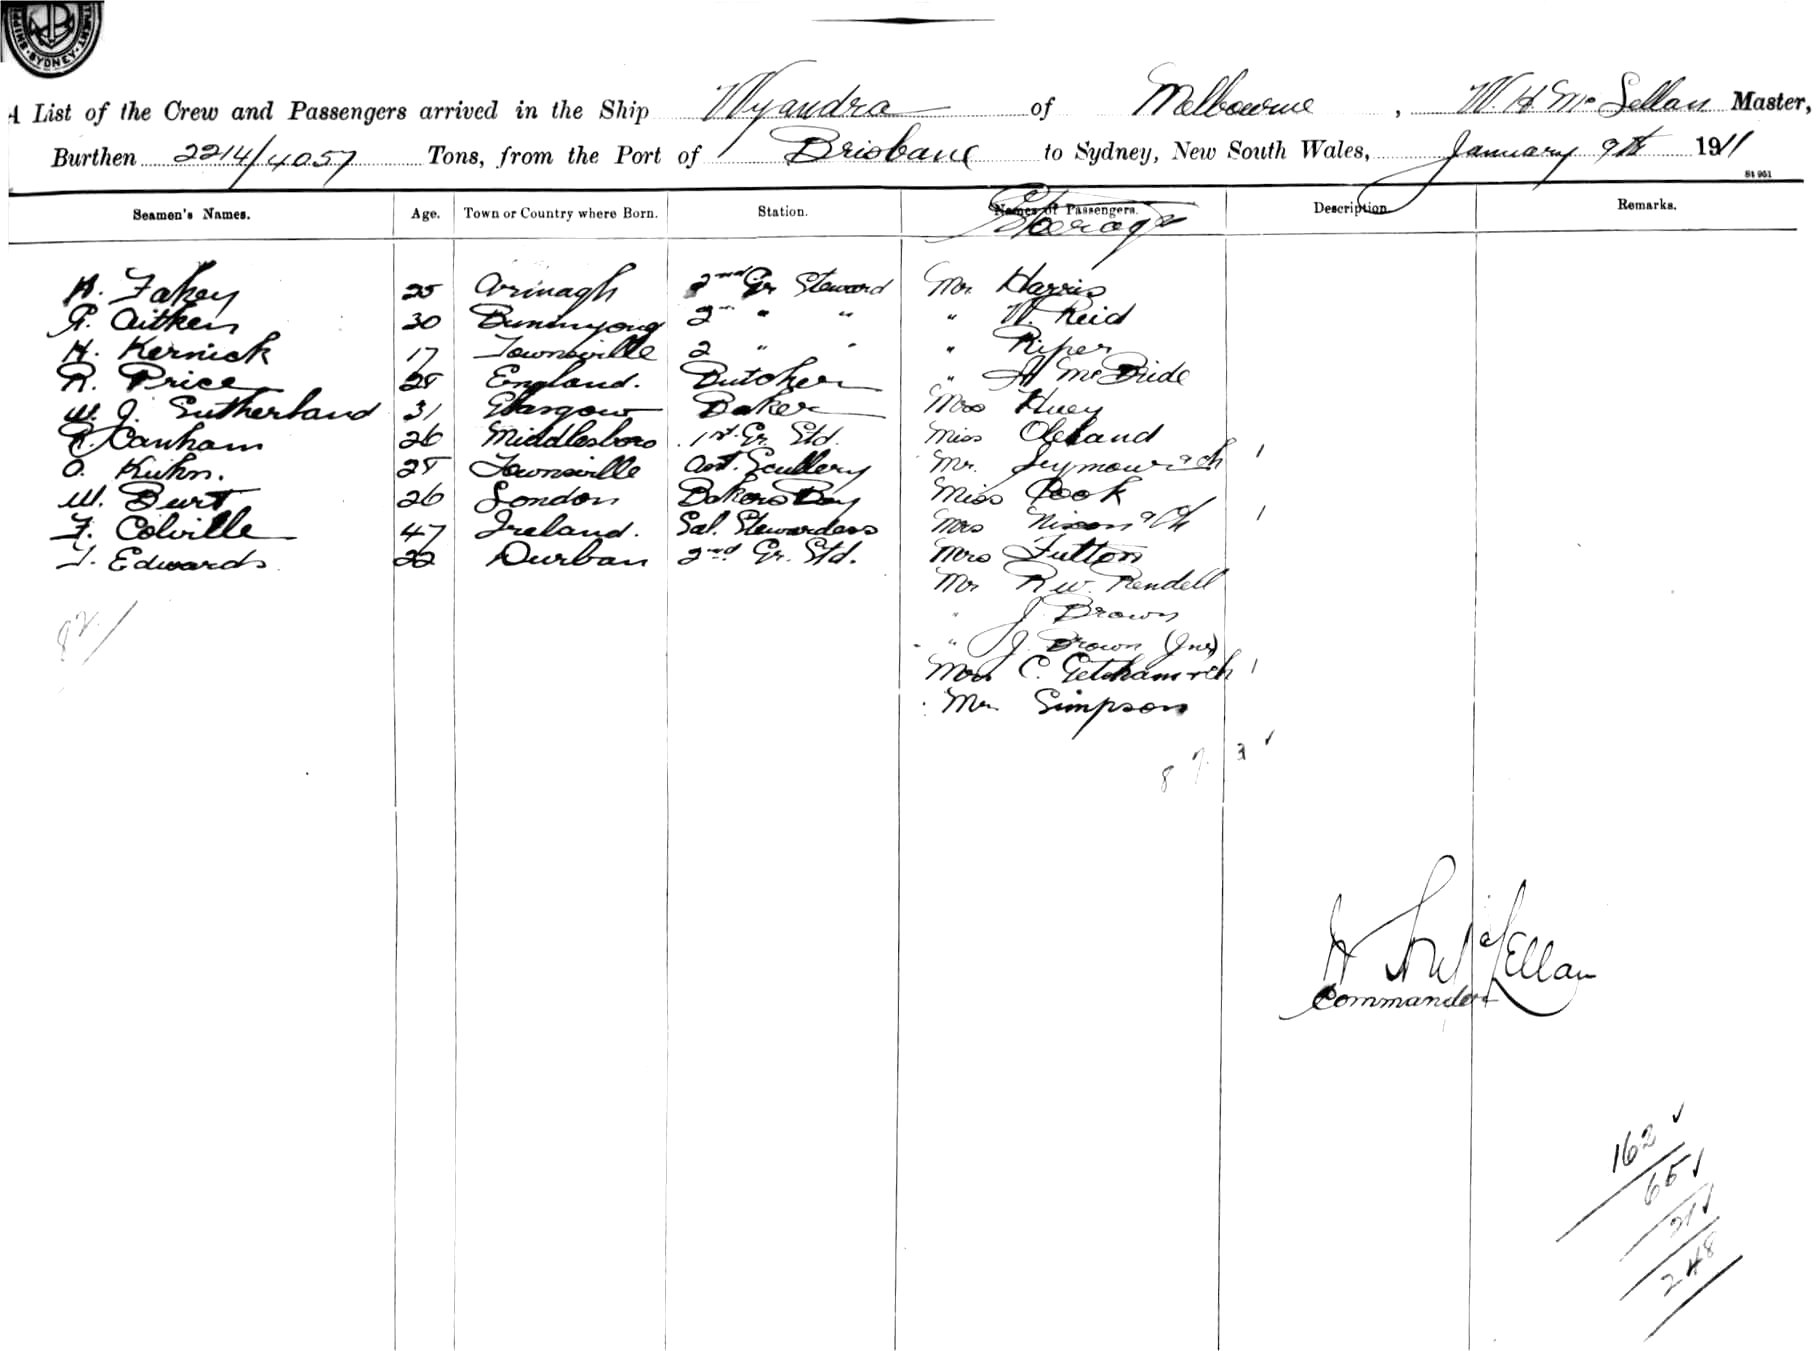 SYDNEY
A List of the Crew and Passengers arrived in the Ship Wyandra of Melbourne, W. H. McLellan Master,
Burthen 2214/4057 Tons, from the Port of Brisbane to Sydney, New South Wales, January 9th 1911
Seamen's Names. Age. Town or Country where Born. Station. Names of Passengers. Description Remarks.
Steerage
H. Fahey 25 Arinagh 2nd Gr Steward Mr. Harris
Aitken 30 Buninyong 2nd " " " W. Reid
H. Kernick 17 Townsville 2 " " " Piper
R. Price England. Butcher " McBride
W. J. Sutherland 31 Glasgow Baker Huey
Canham 26 Middlesboro 1st. Gr. Std. Miss Cleland
O. Kuhn. Townsville Ast. Scullery Mr. Seymour & ch 1
W. Burt 26 London Bakers Boy Miss Cook
F. Colville 47 Ireland. Sal. Stewardess Mrs Nixon & Ch 1
T. Edwards 22 Durban 2nd Gr. Std. Mrs Fulton
Mr R W. Rendell
" J Brown
" J Brown (Jnr)
C. & ch 1
Mr Simpson
McLellan
Commander
162 ✓
65 ✓
21 ✓
248